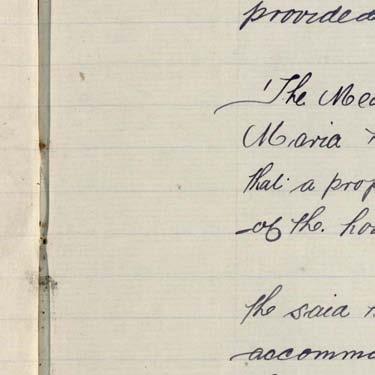 provided
The Med
Maria
that a prop
of the hou
the said
accommo